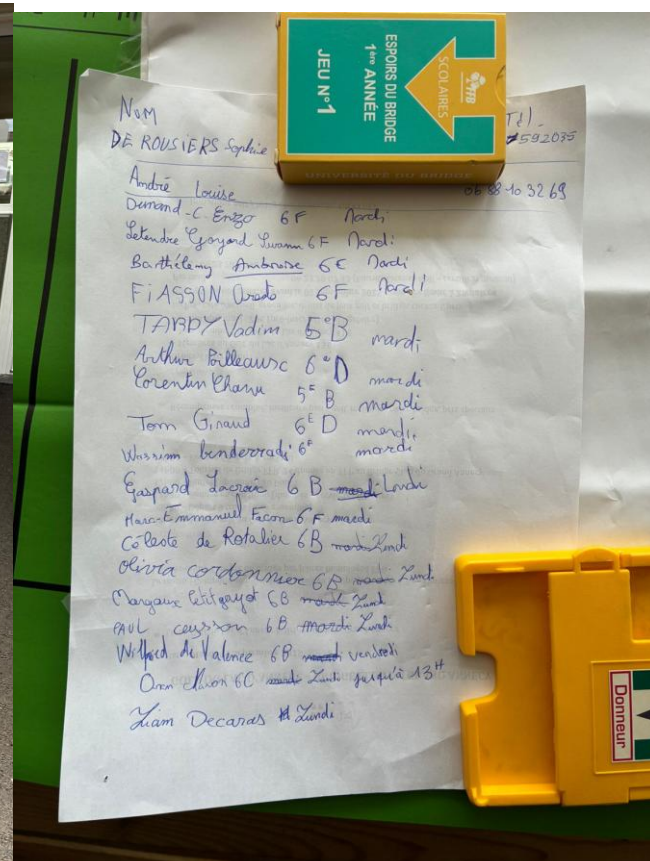 FFB
SCOLAIRES
ESPOIRS DU BRIDGE
1ère ANNÉE
JEU N°1
UNIVERSITÉ DU BRIDGE
NOM
Tél.
DE ROUSIERS Sophie
592035
André Louise
06 88 10 32 69
Durand-C. Enzo 6F Mardi
Letendre Goyard Swann 6F Mardi
Barthélemy Ambroise 6E Mardi
FIASSON 6F Mardi
TARDY Vadim 5°B mardi
Arthur 6°D mardi
Corentin 5E B mardi
Tom Giraud 6E D mardi
Wassim benderradi 6F mardi
Gaspard Lacroix 6B mardi Lundi
Marc-Emmanuel Facon 6F mardi
Céleste de Rotalier 6B mardi Lundi
olivia cordonnier 6B mardi Lundi
Margaux Petitguyot 6B mardi Lundi
PAUL ceysson 6B mardi Lundi
Wilfred de Valence 6B mardi vendredi
6C mardi Lundi jusqu'à 13H
Liam Decaras Lundi
Donneur